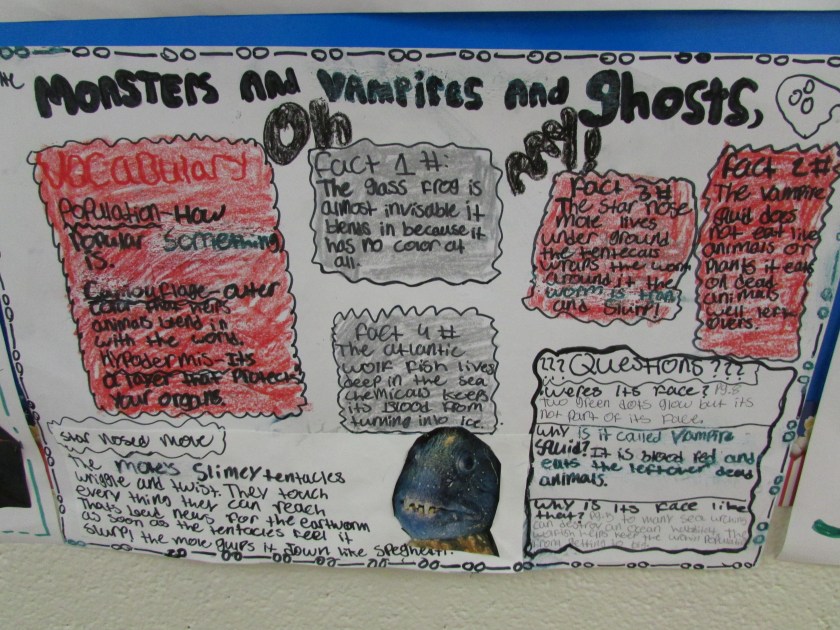 THE
MONSTERS AND VAMPIRES AND ghosts,
Oh
My!!
Vocabulary
Population-How
Popular something
is.
Camouflage-outer
color that helps
animals blend in
with the world.
Hypodermis-Its
a layer that protects
your organs.
fact 1 #:
The glass frog is
almost invisable it
blends in because it
has no color at
all.
Fact 3 #
The star nose
mole lives
under ground
the tentecals
wraps the worm
around it the
worm is
and slurp!
Fact 2 #
The vampire
squid does
not eat live
animals or
plants it eats
on dead
animals
well left
overs.
fact 4 #
The atlantic
wolf fish lives
deep in the sea
chemicals keeps
its blood from
turning into ice.
??? Questions ???
Weres its face?
Two green dots glow but its
not part of its face.
Why is it called vampire
squid? It is blood red and
eats the leftover dead
animals.
Why is its face like
that? to many sea urchins
can destroy an ocean habitat the
wolfish helps keep the urchin population
from getting to big
star nosed move
The moles slimey tentacles
wriggle and twist. They touch
every thing they can reach
Thats bead news for the eartworm
as soon as the tentacles feel it
slurp! the mole gulps it down like spaghetti.